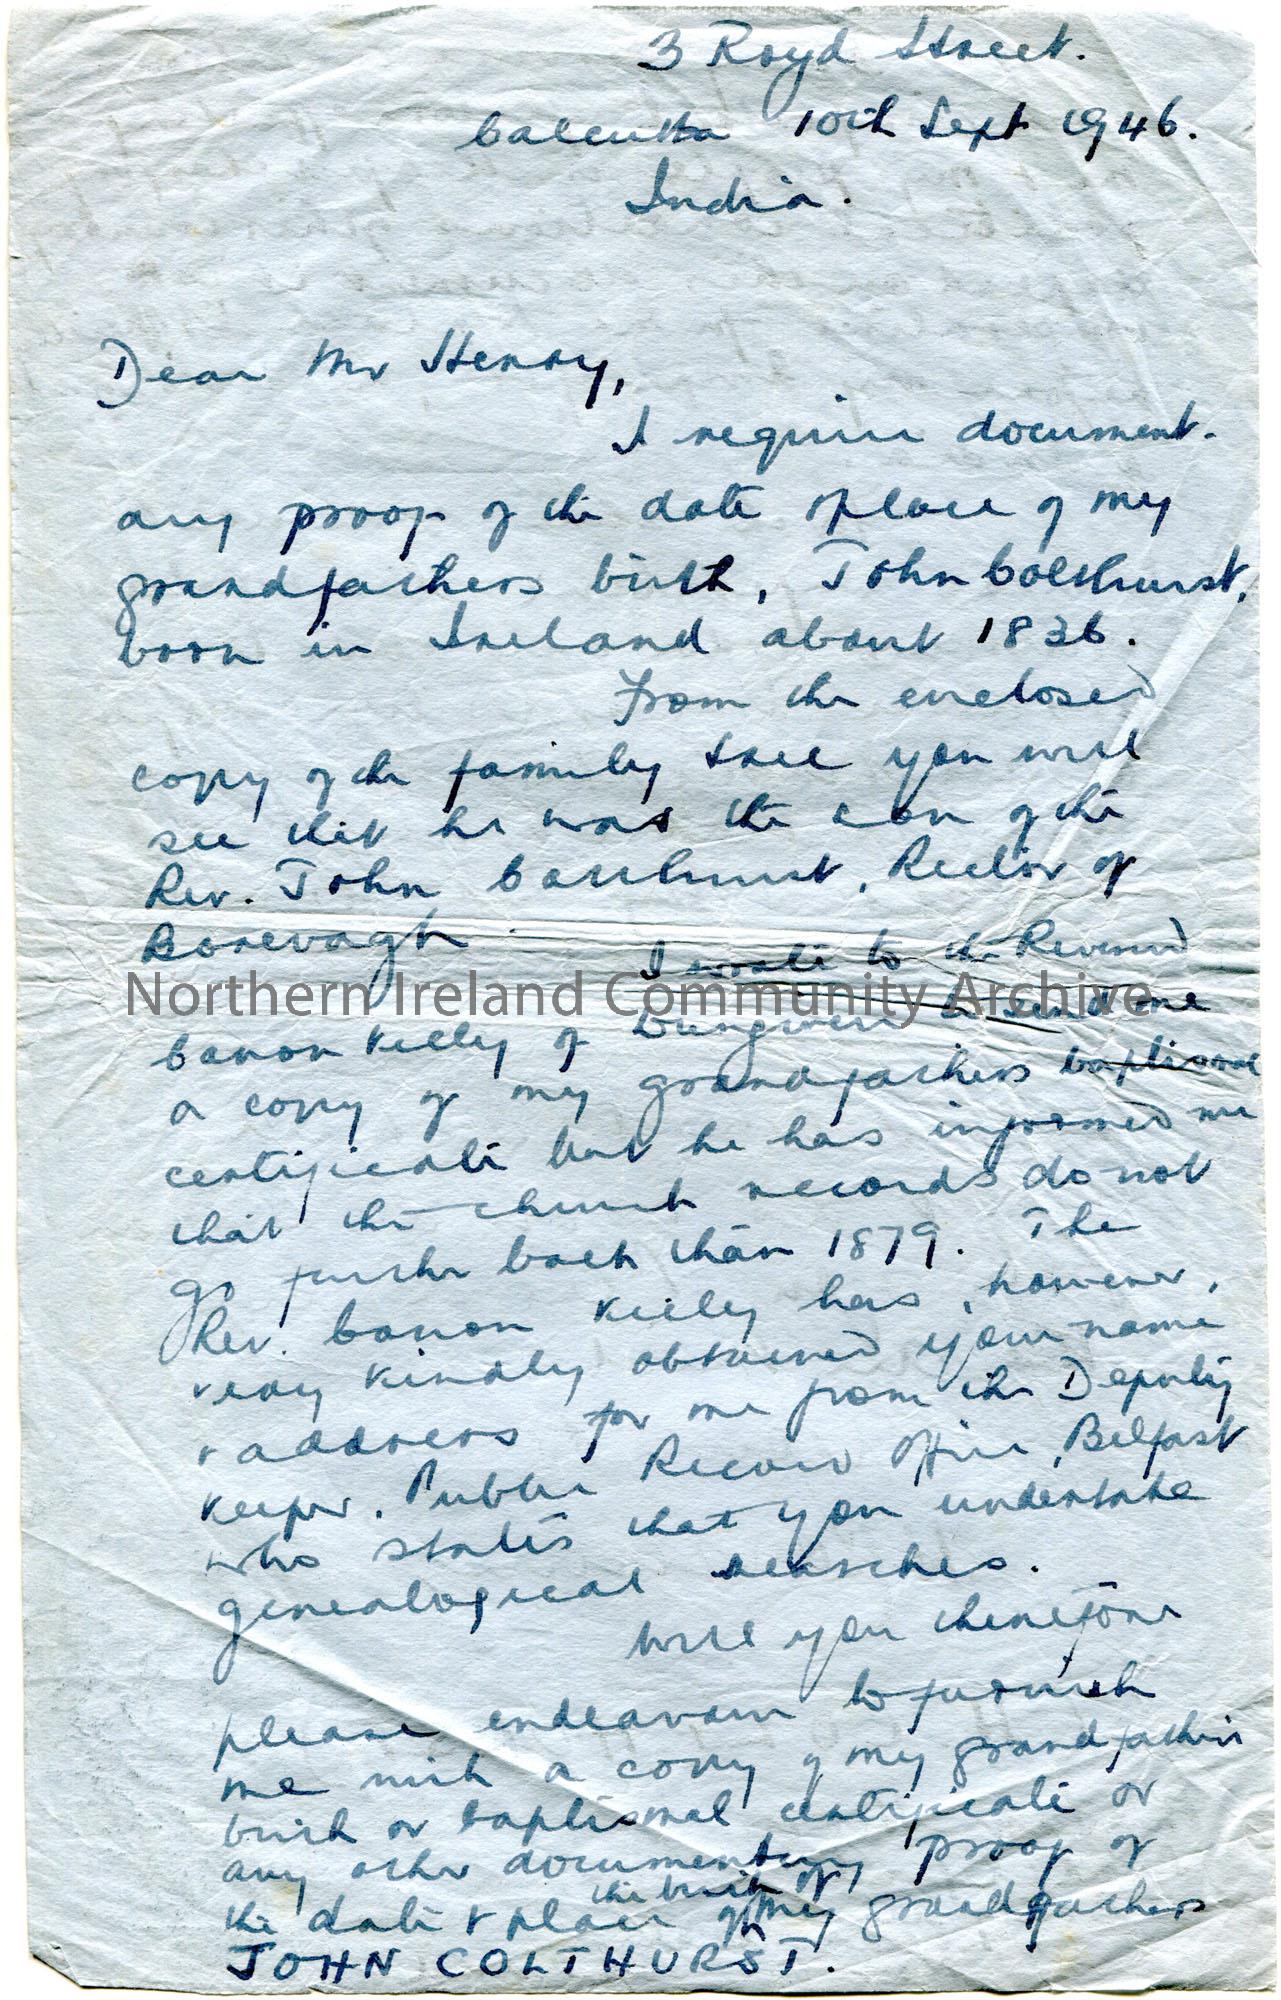 3 Royd Street.
Calcutta 10th Sept 1946.
India.
Dear Mr Henry,
I require document-
ary proof of the date & place of my
grandfathers birth, John Colthurst,
born in Ireland about 1836.
From the enclosed
copy of the family tree you will
see that he was the son of the
Rev. John Colthurst, Rector of
Bovevagh.
I wrote to the Reverend
Northern Ireland Community Archive
Canon Kelly of Dungiven to send me
a copy of my grandfathers baptismal
certificate but he has informed me
that the church records do not
go further back than 1879. The
Rev. Canon Kelly has, however,
very kindly obtained your name
& address for me from the Deputy
Keeper, Public Record Office, Belfast
who states that you undertake
genealogical searches.
Will you therefore
please endeavour to furnish
me with a copy of my grandfathers
birth or baptismal certificate or
any other documentary proof of
the date & place of the birth of my grandfathers
JOHN COLTHURST.